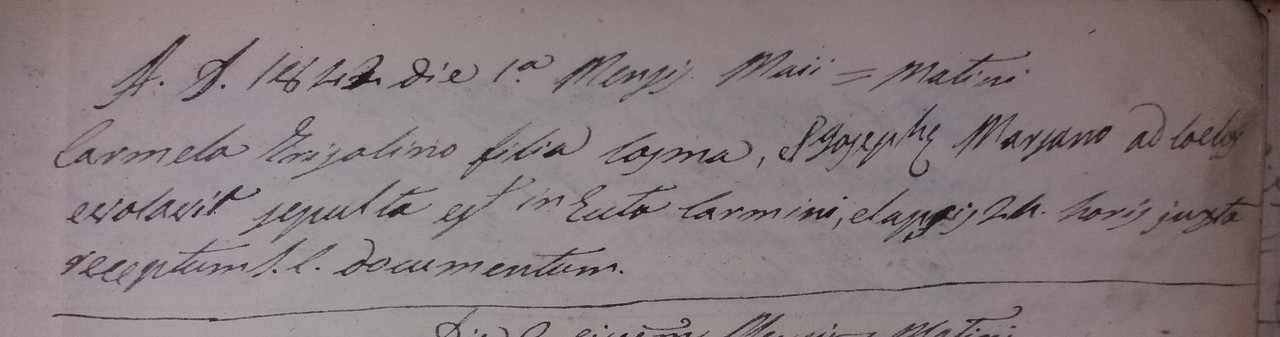 A. D. 1842 die 1.a Mensis Maii = Matini
Carmela Grisolino filia Cosma, et Josephæ Marsano ad Coelos
evolavit sepulta est in Eccta Carmini, elapsis 24. horis juxta
receptum S. C. documentum.
Die 2 ejusdem Mensis = Matini